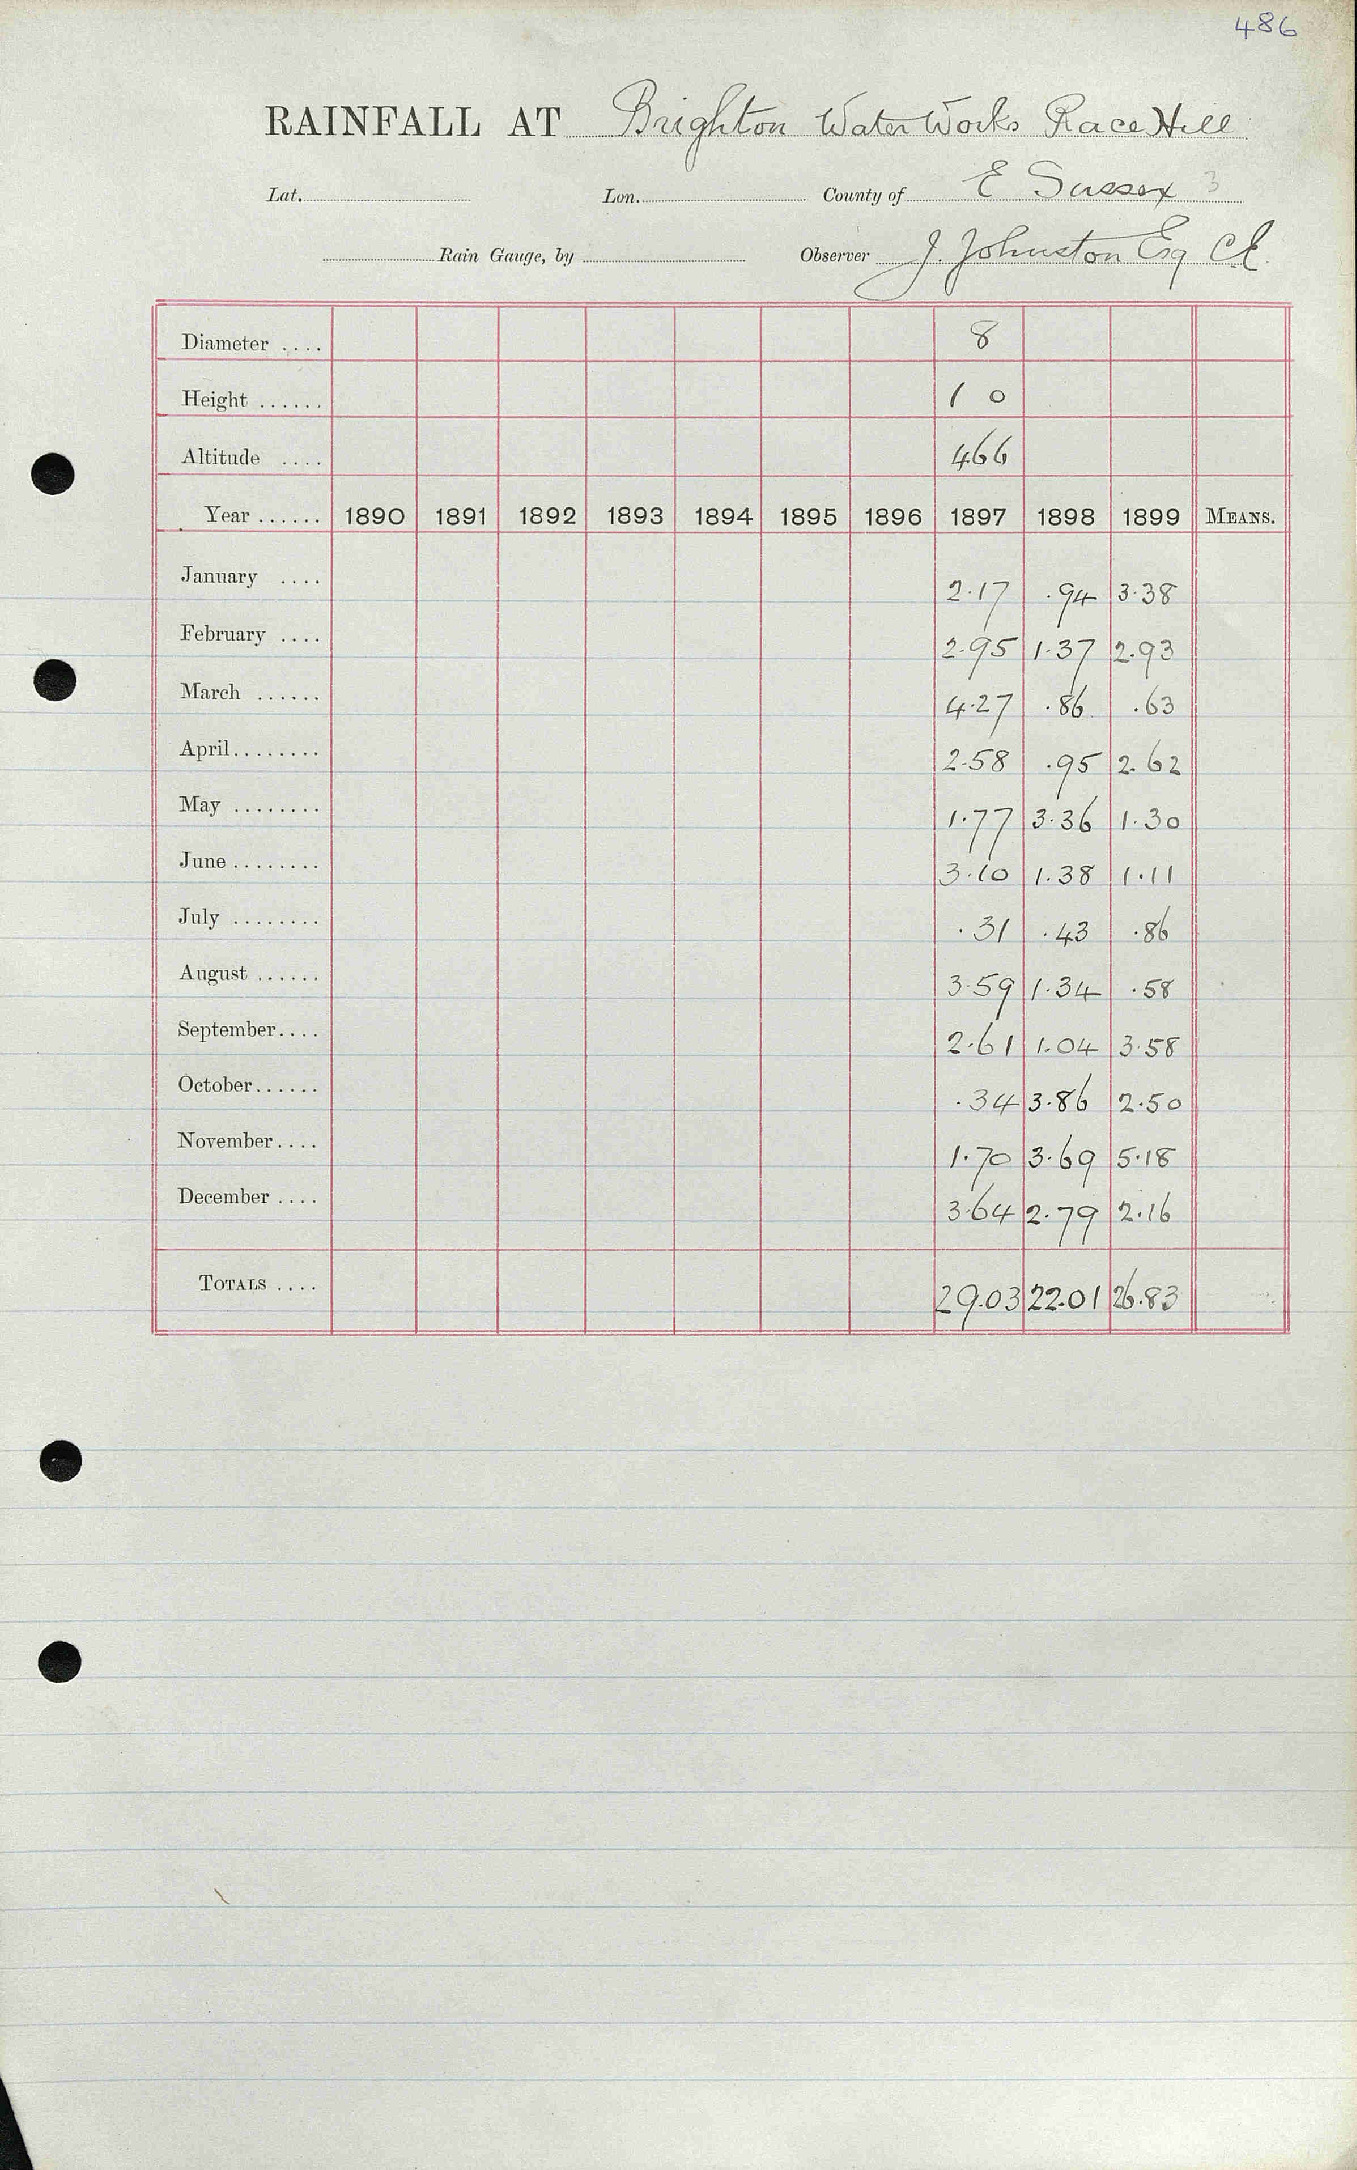 486
RAINFALL AT Brighton Water Works Race Hill
Lat. Lon. County of E Sussex 3
Rain Gauge, by Observer J. Johnston Esq C.E.
Diameter .... 8
Height ...... 1 0
Altitude .... 466
Year ...... 1890 1891 1892 1893 1894 1895 1896 1897 1898 1899 MEANS.
January .... 2.17 .94 3.38
February .... 2.95 1.37 2.93
March ...... 4.27 .86 .63
April ........ 2.58 .95 2.62
May ........ 1.77 3.36 1.30
June ........ 3.10 1.38 1.11
July ........ .31 .43 .86
August ...... 3.59 1.34 .58
September.... 2.61 1.04 3.58
October...... .34 3.86 2.50
November.... 1.70 3.69 5.18
December .... 3.64 2.79 2.16
TOTALS .... 29.03 22.01 26.83